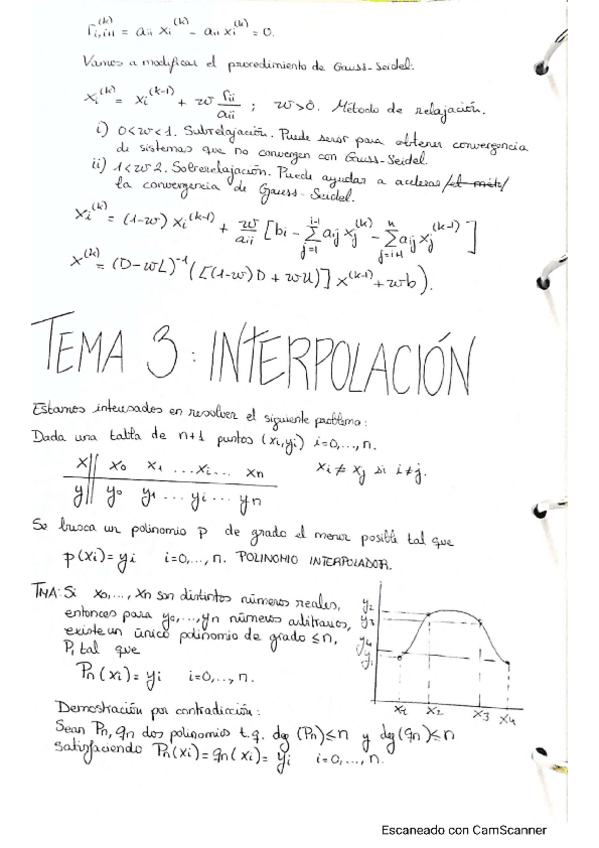 r_{i,i+1}^{(k)} = a_{ii} x_i^{(k)} - a_{ii} x_i^{(k)} = 0.
Vamos a modificar el procedimiento de Gauss-Seidel:
x_i^{(k)} = x_i^{(k-1)} + w r_{ii}/a_{ii} ; w>0. Método de relajación.
i) 0<w<1. Subrelajación. Puede servir para obtener convergencia
de sistemas que no convergen con Gauss-Seidel.
ii) 1<w 2. Sobrerelajación. Puede ayudar a acelerar
la convergencia de Gauss-Seidel.
x_i^{(k)} = (1-w) x_i^{(k-1)} + w/a_{ii} [b_i - \sum_{j=1}^{i-1} a_{ij} x_j^{(k)} - \sum_{j=i+1}^{n} a_{ij} x_j^{(k-1)}]
x^{(k)} = (D-wL)^{-1} ([(1-w)D + wU)] x^{(k-1)} + wb).
TEMA 3: INTERPOLACIÓN
Estamos interesados en resolver el siguiente problema:
Dada una tabla de n+1 puntos (x_i,y_i) i=0,...,n.
x || x_0 x_1 ...x_i... x_n x_i ≠ x_j si i≠j.
y || y_0 y_1 ... y_i ... y_n
Se busca un polinomio p de grado el menor posible tal que
p(x_i)=y_i i=0,...,n. POLINOMIO INTERPOLADOR.
TMA: Si x_0,...,x_n son distintos números reales,
entonces para y_0,...,y_n números arbitrarios,
existe un único polinomio de grado ≤n,
P, tal que
P_n(x_i)=y_i i=0,...,n.
y_2
y_3
y_4
y_1
x_1 x_2 x_3 x_4
Demostración por contradicción:
Sean P_n, q_n dos polinomios t.q. dg(P_n)≤n y dg(q_n)≤n
satisfaciendo P_n(x_i)=q_n(x_i)=y_i i=0,...,n.
Escaneado con CamScanner